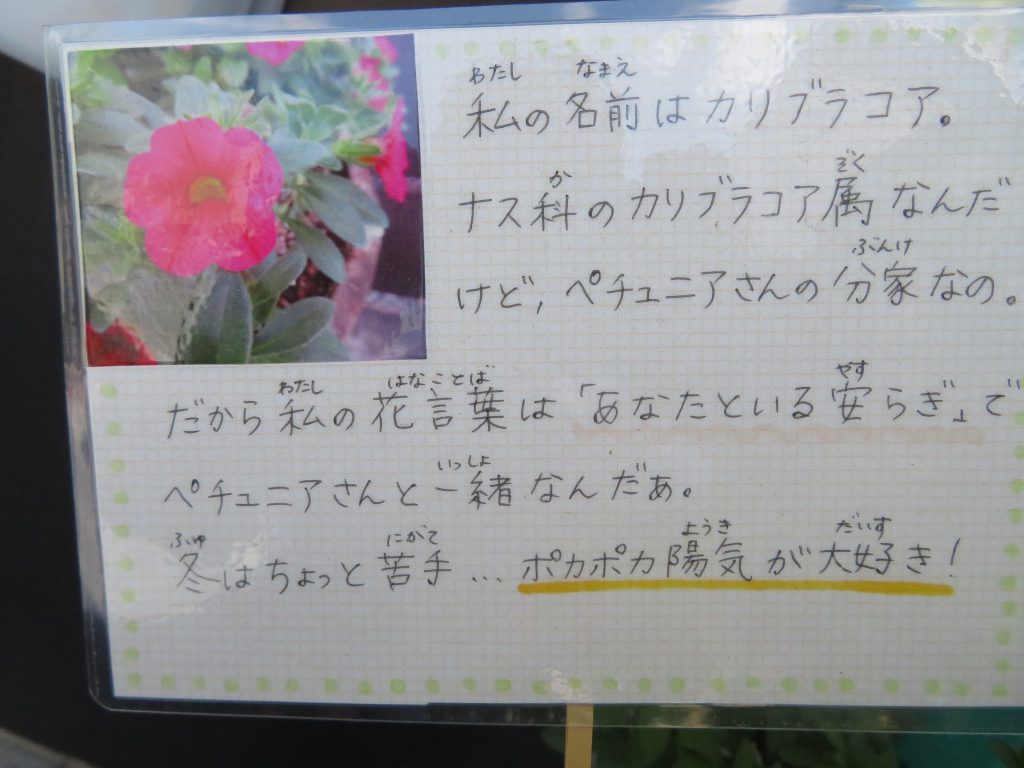 わたし なまえ
私の名前はカリブラコア。
か ぞく
ナス科のカリブラコア属なんだ
ぶんけ
けど、ペチュニアさんの分家なの。
わたし はなことば やす
だから私の花言葉は「あなたといる安らぎ」で
いっしょ
ペチュニアさんと一緒なんだぁ。
ふゆ にがて ようき だいす
冬はちょっと苦手…ポカポカ陽気が大好き!